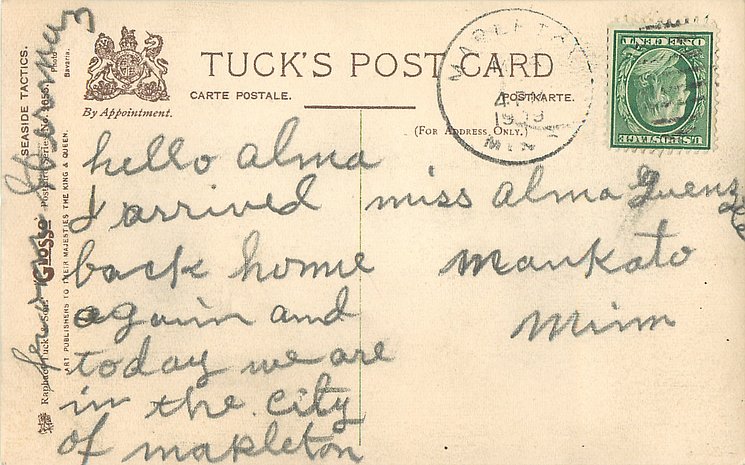 TUCK'S POST CARD
CARTE POSTALE.
POSTKARTE.
By Appointment.
(FOR ADDRESS ONLY.)
MAPLETON
4 PM
1909
MINN
ONE CENT
U.S. POSTAGE
hello alma
I arrived
back home
again and
today we are
in the city
of mapleton
miss alma Guenzle
Mankato
Minn
SEASIDE TACTICS.
Raphael Tuck & Sons' "Glosso" Postcard Series No.
Bavaria.
ART PUBLISHERS TO THEIR MAJESTIES THE KING & QUEEN.